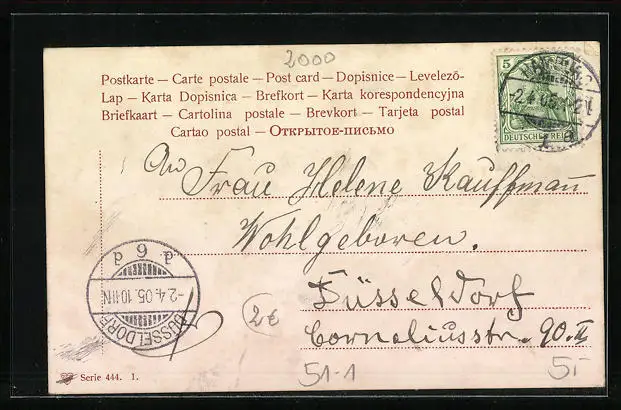 2000
Postkarte — Carte postale — Post card — Dopisnice — Levelező-
Lap — Karta Dopisnica — Brefkort — Karta korespondencyjna
Briefkaart — Cartolina postale — Brevkort — Tarjeta postal
Cartao postal — Открытое-письмо
5
DEUTSCHES REICH
2.4.05
An
Frau Helene Kauffmann
Wohlgeboren.
Düsseldorf
Corneliusstr. 90. II
DÜSSELDORF
-2.4.05. 10-11N.
d 6 d
2€
51-1
5.-
Serie 444. 1.